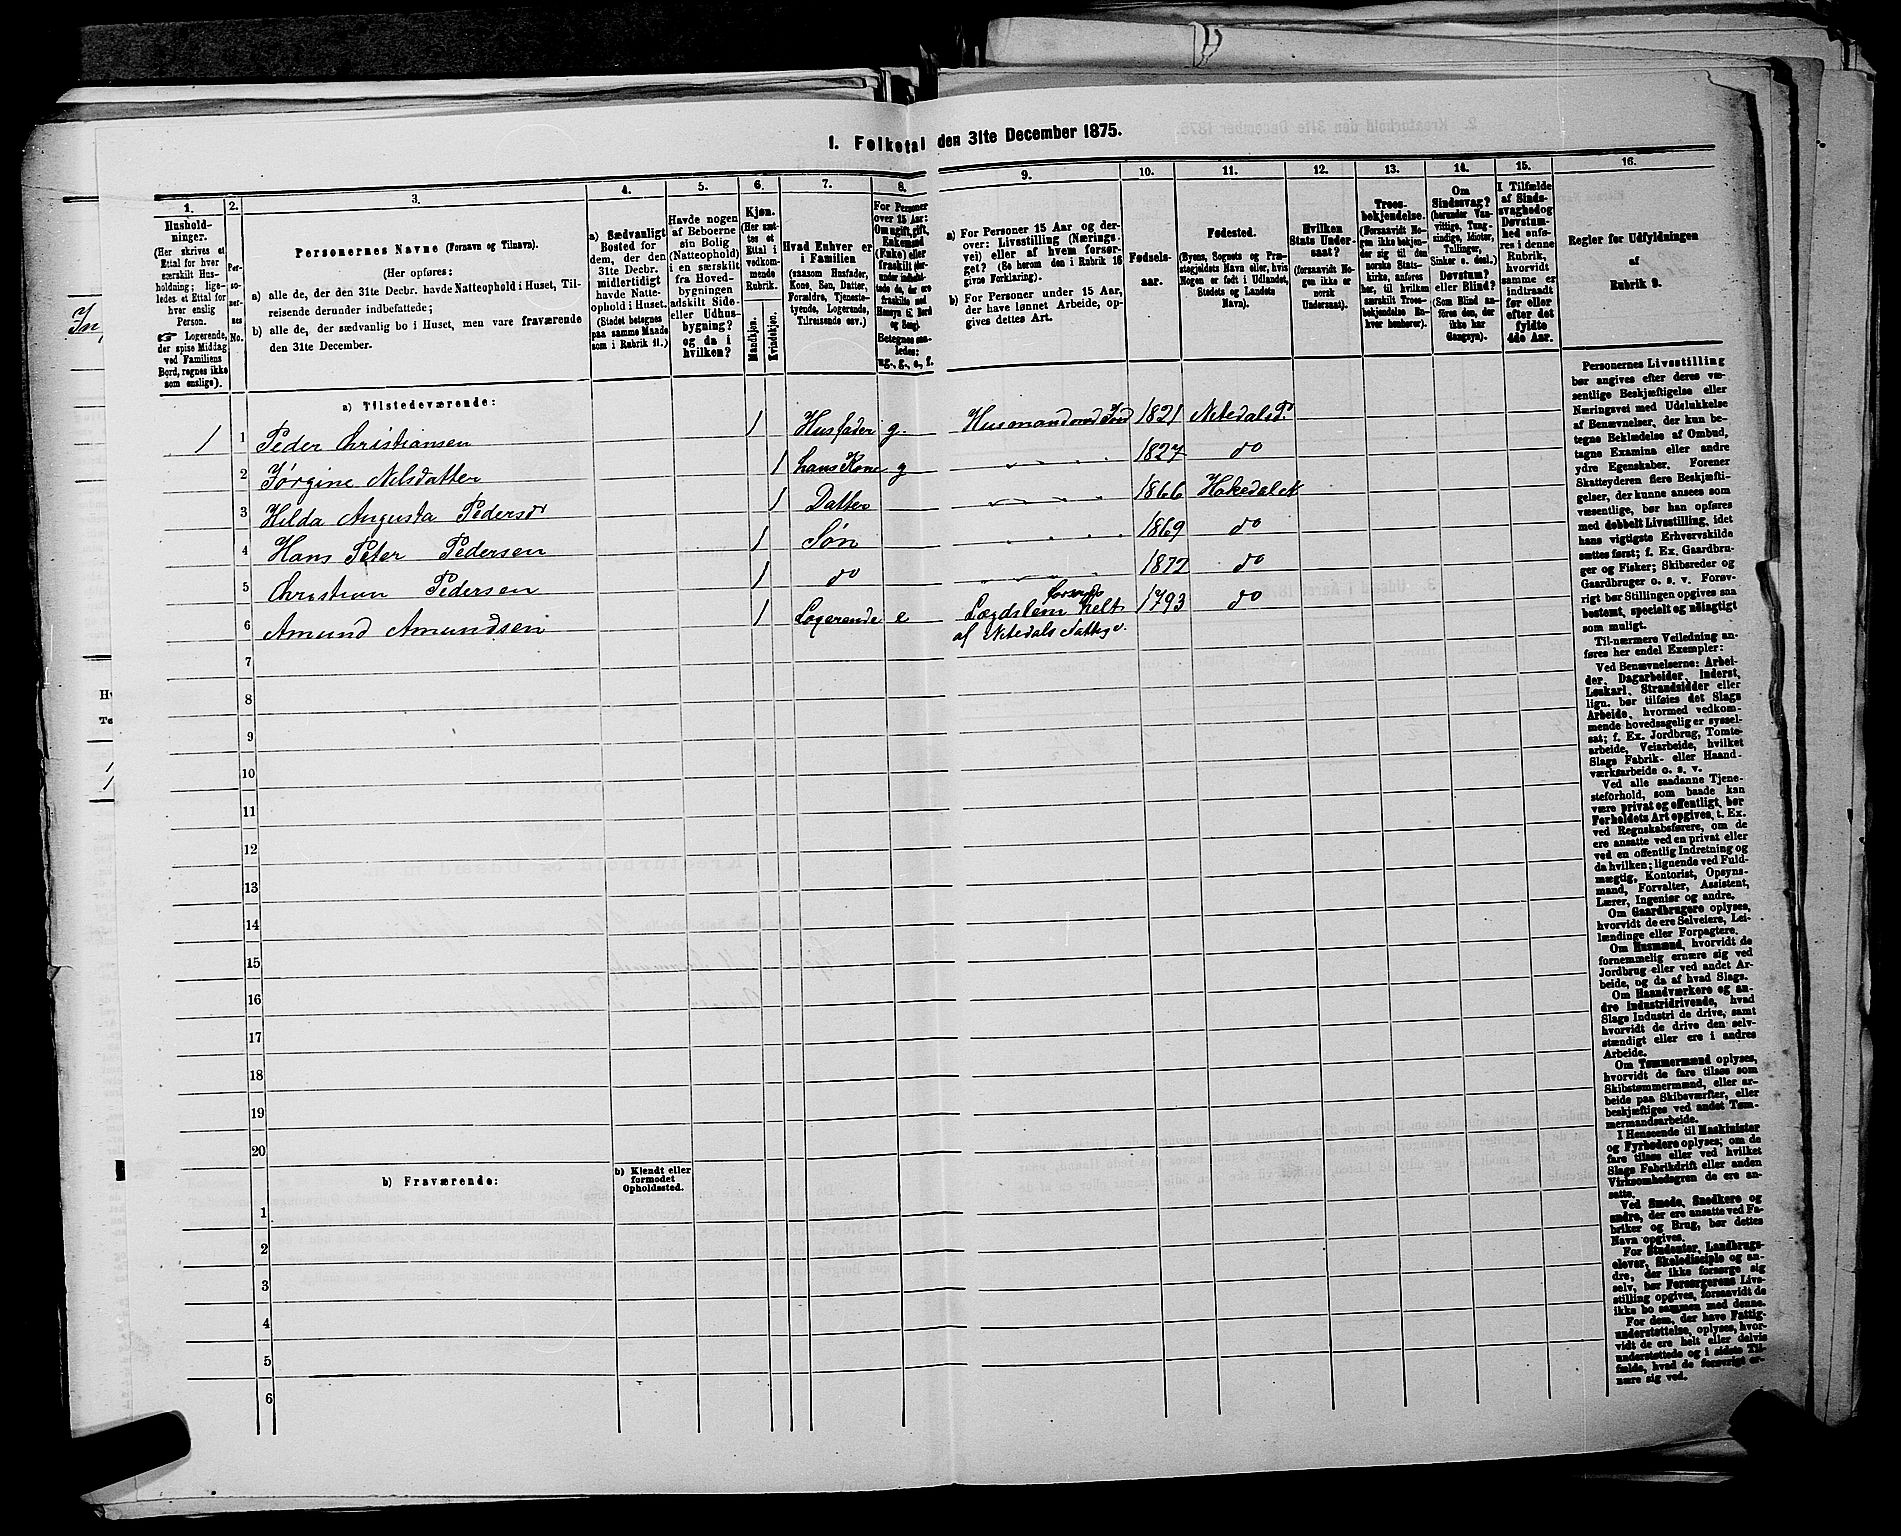 1. Folketal den 31te December 1875.
1. 2. 3. 4. 5. 6. 7. 8. 9. 10. 11. 12. 13. 14. 15. 16.
Hushold-
ninger.
(Her skrives et
Ettal for hver
særskilt Hus-
holdning; lige-
ledes et Ettal for
hver enslig
Person.
☞ Logerende,
der spise Middag
ved Familiens
Bord, regnes ikke
som enslige).
Per-
so-
ner-
nes
No.
Personernes Navne (Fornavn og Tilnavn).
(Her opføres:
a) alle de, der den 31te Decbr. havde Natteophold i Huset, Til-
reisende derunder indbefattede;
b) alle de, der sædvanlig bo i Huset, men vare fraværende
den 31te December.
a) Sædvanligt
Bosted for
dem, der den
31te Decbr.
midlertidigt
havde Natte-
ophold i Huset.
(Stedet betegnes
paa samme Maade
som i Rubrik 11.)
Havde nogen
af Beboerne
sin Bolig
(Natteophold)
i en særskilt
fra Hoved-
bygningen
adskilt Side-
eller Udhus-
bygning?
og da i
hvilken?
Kjøn.
(Her sæt-
tes et
Ettal i
vedkom-
mende
Rubrik.
Mandkjøn.
Kvindekjøn.
Hvad Enhver er
i Familien
(saasom Husfader,
Kone, Søn, Datter,
Forældre, Tjeneste-
tyende, Logerende,
Tilreisende osv.)
For Personer
over 15 Aar:
Om ugift, gift,
Enkemand
(Enke) eller
fraskilt
Betegnes saa-
ledes:
ug., g., e., f.
a) For Personer 15 Aar og der-
over: Livsstilling (Nærings-
vei) eller af hvem forsør-
get? (Se herom den i Rubrik 16
givne Forklaring).
b) For Personer under 15 Aar,
der have lønnet Arbeide, op-
gives dettes Art.
Fødsels-
aar.
Fødested.
(Byens, Sognets og Præ-
stegjeldets Navn eller, hvis
Nogen er født i Udlandet,
Stedets og Landets
Navn).
Hvilken
Stats Under-
saat?
(forsaavidt No-
gen ikke er
norsk
Undersaat).
Troes-
bekjendelse.
(Forsaavidt No-
gen ikke bekjen-
der sig til den
norske Stats-
kirke, anføres
her, til hvilken
særskilt Troes-
bekjendelse En-
hver henhører).
Om
Sindssvag?
(herunder Van-
vittige, Tung-
sindige, Idioter,
Tullinger,
Sinker o. desl.)
Døvstum?
eller Blind?
(Som Blind an-
føres den, der
ikke har
Gangsyn).
I Tilfælde
af Sinds-
svaghed og
Døvstum-
hed anfø-
res i denne
Rubrik,
hvorvidt
samme er
indtraadt
før eller
efter det
fyldte
4de Aar.
Regler for Udfyldningen
af
Rubrik 9.
a) Tilstedeværende:
1 1 Peder Christiansen 1 Husfader g. Husmand med Jord 1821 Nitedals P
2 Jørgine Nilsdatter 1 hans Kone g " " " 1827 do
3 Hilda Augusta Pedersd 1 Datter " " " 1866 Hakedal
4 Hans Peter Pedersen 1 Søn " " " 1869 do
5 Christian Pedersen 1 do " " " 1872 do
6 Amund Amundsen 1 Logerende e Lægdslem forsørges helt 1793 do
af Nitedals Fattigv.
7
8
9
10
11
12
13
14
15
16
17
18
19
20
b) Fraværende:
b) Kjendt eller
formodet
Opholdssted.
1
2
3
4
5
6
Personernes Livsstilling
bør angives efter deres væ-
sentlige Beskjæftigelse eller
Næringsvei med Udelukkelse
af Benævnelser, der kun be-
tegne Beklædelse af Ombud,
tagne Examina eller andre
ydre Egenskaber. Forener
Skatteyderen flere Beskjæfti-
gelser, der kunne ansees som
væsentlige, bør han opføres
med dobbelt Livsstilling, idet
hans vigtigste Erhvervskilde
sættes først; f. Ex. Gaardbru-
ger og Fisker; Skibsreder og
Gaardbruger o. s. v. Forøv-
rigt bør Stillingen opgives saa
bestemt, specielt og nøiagtigt
som muligt.
Til nærmere Veiledning an-
føres her endel Exempler:
Ved Benævnelserne: Arbei-
der, Dagarbeider, Inderst,
Løskarl, Strandsidder eller
lign. bør tilføies det Slags
Arbeide, hvormed vedkom-
mende hovedsagelig er syssel-
sat; f. Ex. Jordbrug, Tomte-
arbeide, Veiarbeide, hvilket
Slags Fabrik- eller Haand-
værksarbeide o. s. v.
Ved alle saadanne Tjene-
steforhold, som baade kan
være privat og offentligt, bør
Forholdets Art opgives, t. Ex.
ved Regnskabsførere, om de
ere ansatte ved en privat eller
ved en offentlig Indretning og
da hvilken; lignende ved Fuld-
mægtig, Kontorist, Opsyns-
mand, Forvalter, Assistent,
Lærer, Ingeniør og andre.
Om Gaardbrugere oplyses,
hvorvidt de ere Selveiere, Lei-
lændinge eller Forpagtere.
Om Husmænd, hvorvidt de
fornemmelig ernære sig ved
Jordbrug eller ved andet Ar-
beide, og da af hvad Slags.
Om Haandværkere og an-
dre Industridrivende, hvad
Slags Industri de drive, samt
hvorvidt de drive den selv-
stændigt eller ere i andres
Arbeide.
Om Tømmermænd oplyses,
hvorvidt de fare tilsøs som
Skibstømmermænd, eller ar-
beide paa Skibsværfter, eller
beskjæftiges ved andet Tøm-
mermandsarbeide.
I Henseende til Maskinister
og Fyrbødere oplyses; om de
fare tilsøs eller ved hvilket
Slags Fabrikdrift eller anden
Virksomhedsgren de ere an-
satte.
Ved Smede, Snedkere og
andre, der ere ansatte ved Fa-
briker og Brug, bør dettes
Navn opgives.
For Studenter, Landbrugs-
elever, Skoledisciple og an-
dre, der ikke forsørge sig
selv, bør Forsørgerens Livs-
stilling opgives, forsaavidt de
ikke bo sammen med denne.
For dem, der have Fattig-
understøttelse, oplyses, hvor-
vidt de ere helt eller delvis
understøttede og i sidste Til-
fælde, hvad de forøvrigt er-
nære sig ved.